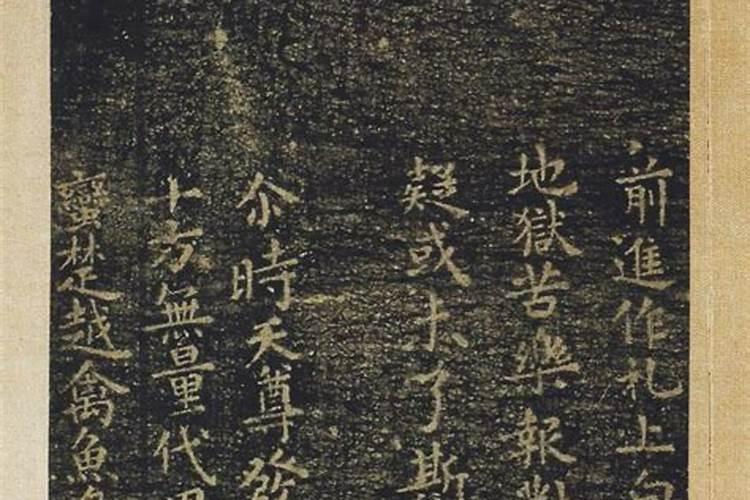 前進作礼上
地獄苦樂報
疑或未了斯
尒時天尊發
十方無量代
蠻楚越禽魚